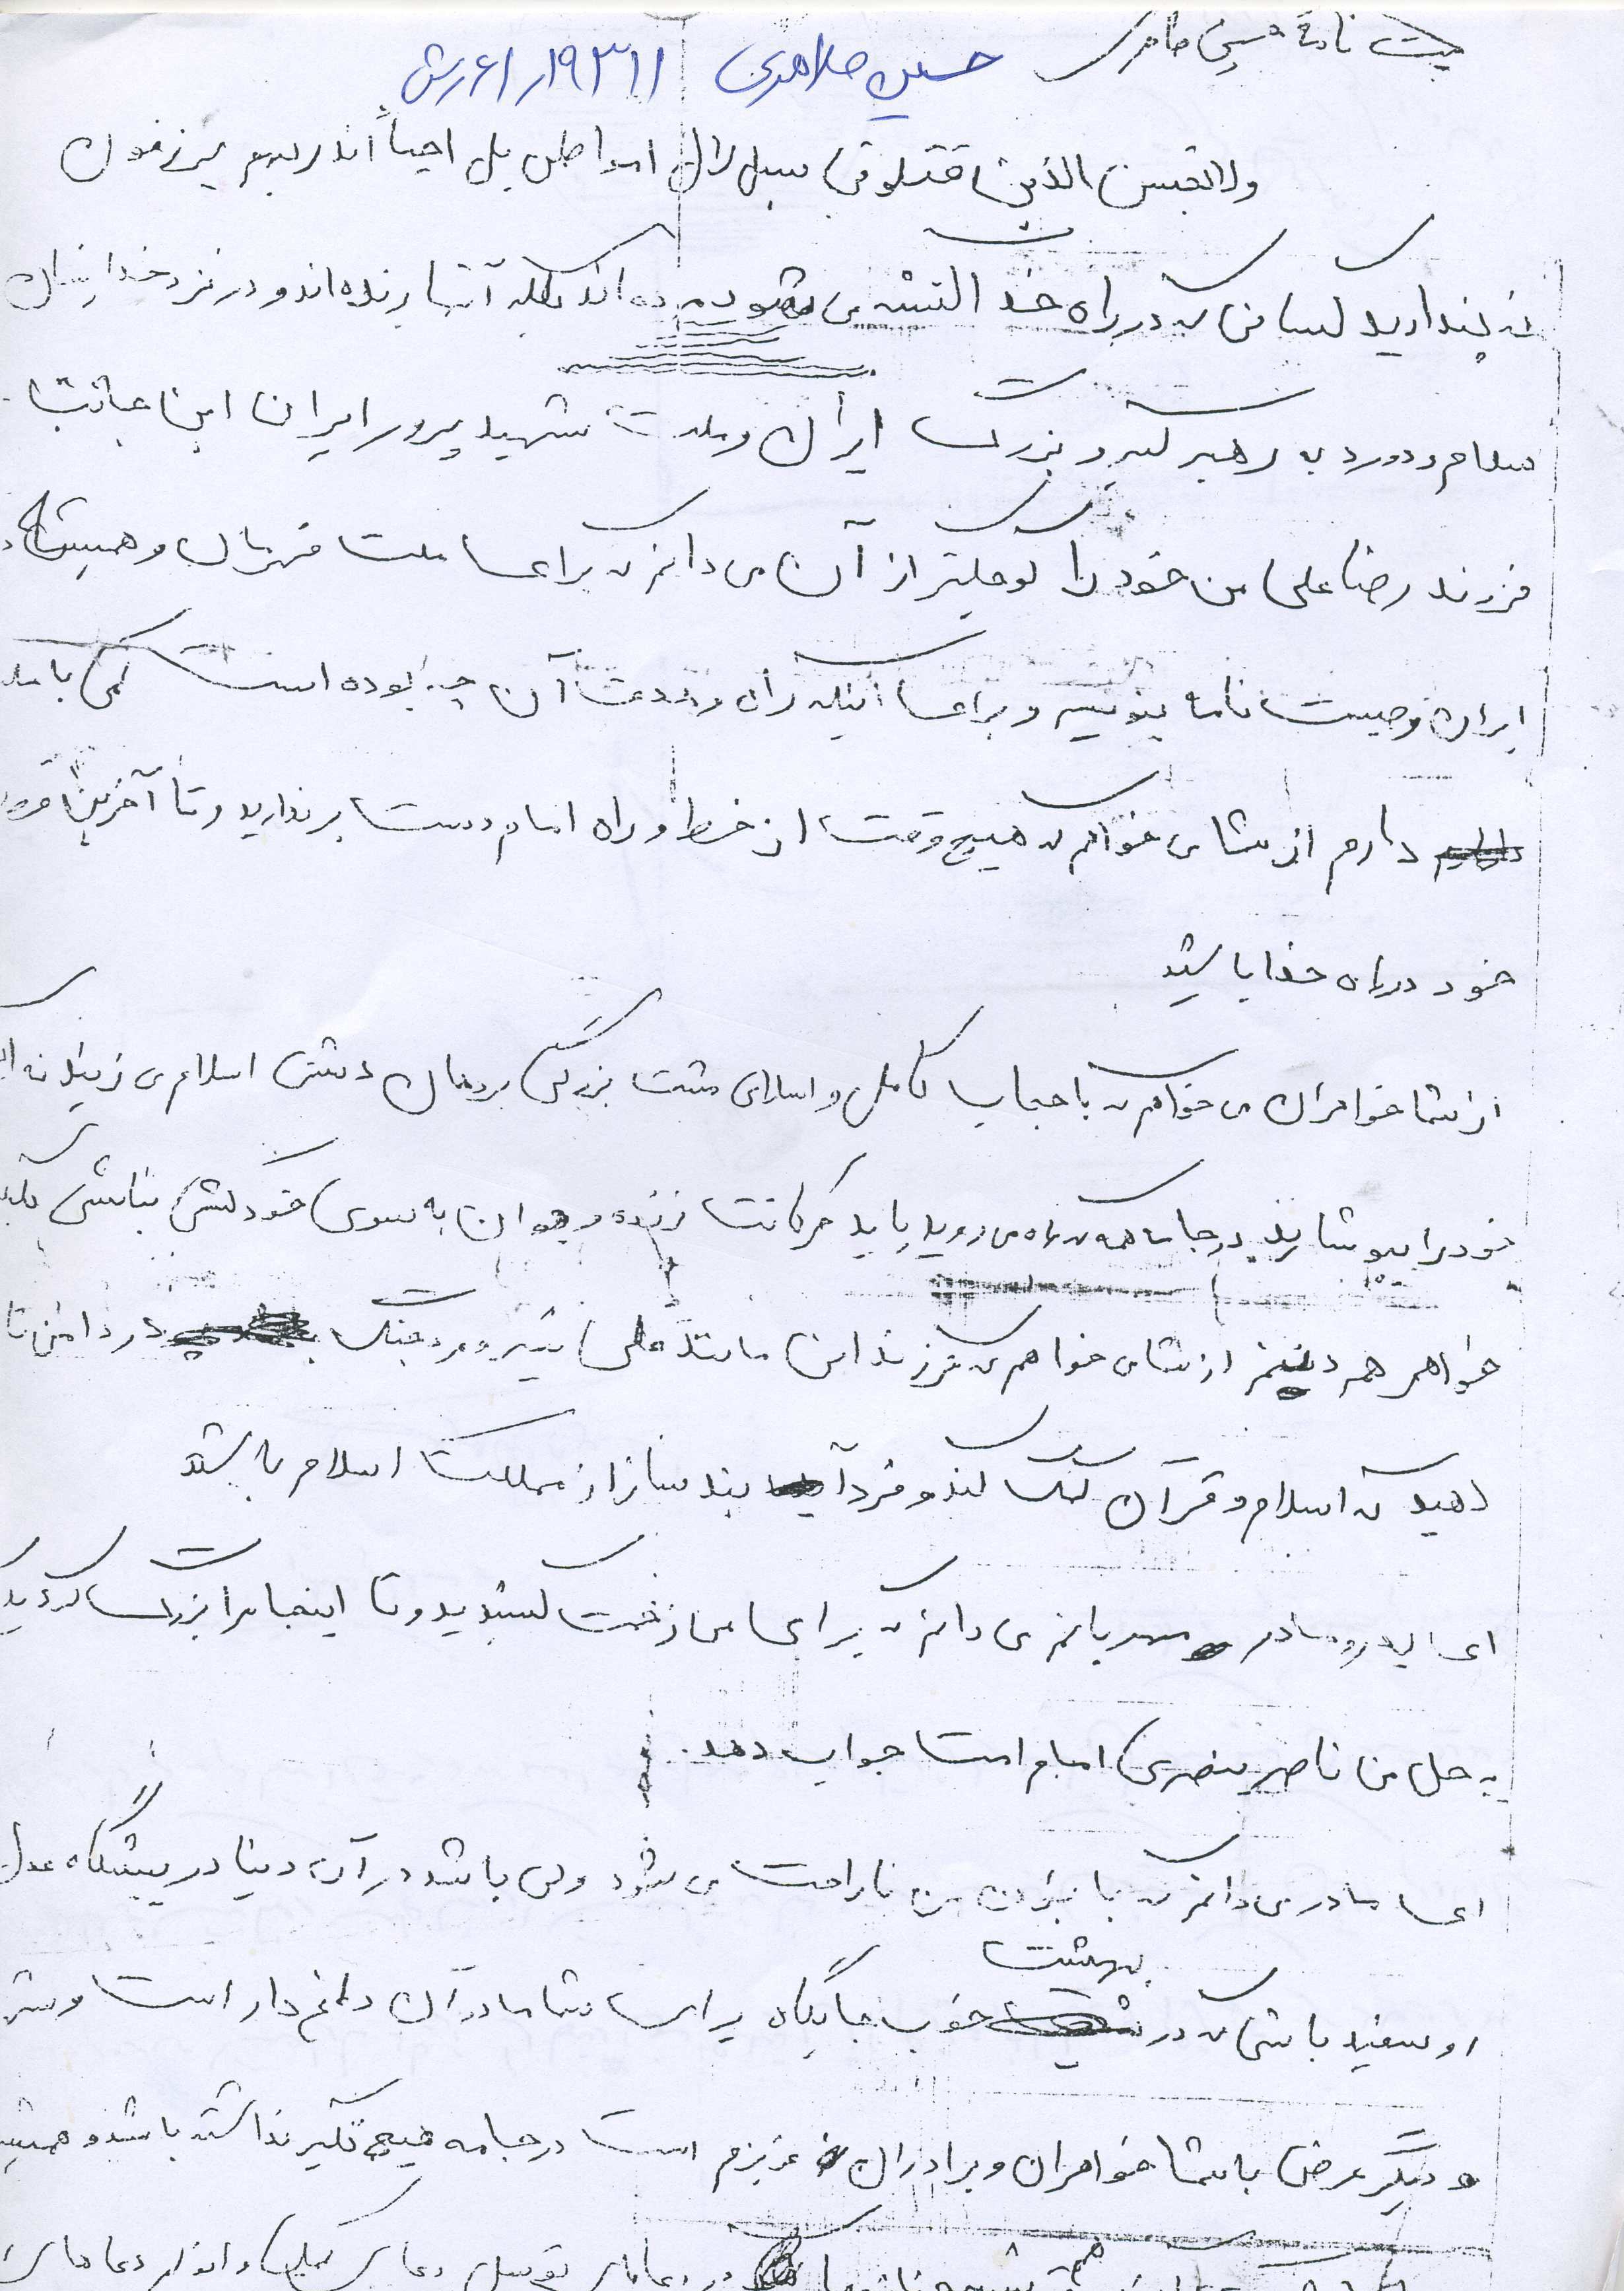 یت نامهٔ حسین طاهری حسین طاهری ۱۹۳۱۱ر۶۱ رش
ولاتحسبن الذین قتلو فی سبیل الله امواطن بل احیاً اند ربهم یرزقون
نه پندارید کسانی که در راه خدا کشته می شوند مرده اند بلکه آنها زنده اند و در نزد خدا
سلام و درود به رهبر کبیر و بزرگ ایران و ملت شهید پرور ایران این جانب
فرزند رضا علی من خود را کوچکتر از آن می دانم که برای ملت قهرمان و همیشه
ایران وصیت نامه بنویسم و برای اینکه راه و آن چه بوده است کمی باید
دارم از شما می خواهم که هیچ وقت از خط و راه امام دست برندارید و تا آخرین
خود در راه خدا باشید
از شما خواهران می خواهم که با حجاب کامل و اسلامی مشت بزرگی بر دهان دشمن اسلام می زنید نه
خود را بپوشانید در جامعه که راه می روید باید حرکات زننده و به سوی خودکشی نباشی بلکه
خواهر هم دینم از شما می خواهم که فرزندانی مانند علی شیر و مرد جنگ در دامن تا
دهید که اسلام و قرآن کمک کند و فردا از مملکت اسلام باشد
ای پدر و مادر مهربانم می دانم که برای من زحمت کشیدید و تا اینجا مرا بزرگ کردید
به حل من ناصر ینصری امام امت جواب دهد.
ای مادر می دانم که با نبودن من ناراحت می شود ولی باشد در آن دنیا در پیشگاه عدل
رو سفید باشی که در بهشت خوب جایگاه برای شما مادران داغ دار است و
و دیگر عرض با شما خواهران و برادران عزیزم است در جامه هیچ تکبر نداشته باشد و همیشه
در دعاهای توسل دعای کمیل و دعاهای